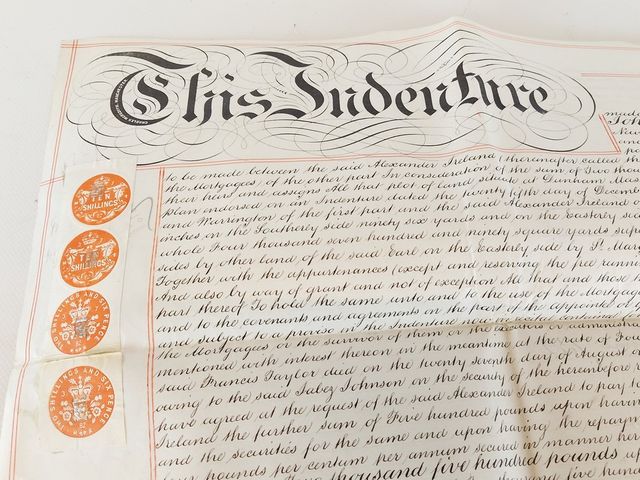 This Indenture
made
to be made between the said Alexander Ireland (hereinafter called the
the Mortgagee) of the other part In consideration of the sum of Two thou
their heirs and assigns All that plot of land situate at Dunham Mas
plan endorsed on an Indenture dated the twenty fifth day of Decem
and Warrington of the first part and the said Alexander Ireland o
inches on the Southerly side ninety six yards and on the Easterly side
whole Four thousand seven hundred and ninety square yards supe
sides by other land of the said Earl on the Easterly side by St. Mar
Together with the appurtenances (except and reserving the free runnin
And also by way of grant and not of exception All that and those
part thereof To hold the same unto and to the use of the Mortgag
and to the covenants and agreements on the part of the appointee of
and subject to a proviso in the Indenture now
the Mortgagees or the survivor of them or the executors or administra
mentioned with interest thereon in the meantime at the rate of Four
said Francis Taylor died on the twenty seventh day of August
owing to the said Jabez Johnson on the security of the hereinbefore r
have agreed at the request of the said Alexander Ireland to pay
Ireland the further sum of Five hundred pounds upon havin
and the securities for the same and upon having the repaym
four pounds per centum per annum secured in manner here
thousand five hundred pounds u
thousand five hund
TEN SHILLINGS
TEN SHILLINGS
TWO SHILLINGS AND SIX PENCE
TWO SHILLINGS AND SIX PENCE